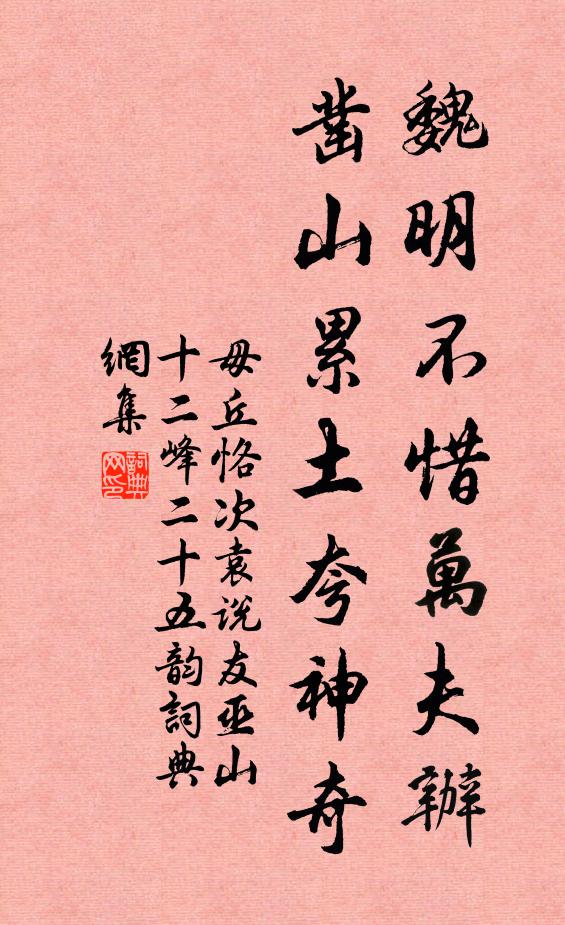 魏明不惜萬夫辦
凿山累土夸神奇
毋丘恪次袁说友巫山
十二峰二十五韵詞典
網集
詞典
网印